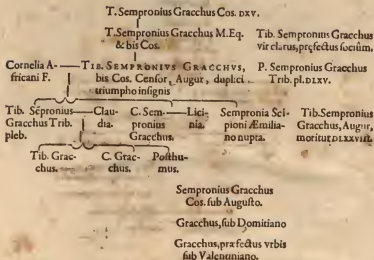 T. Sempronius Gracchus Cos. DXV.
T. Sempronius Gracchus M. Eq. & bis Cos.
Tib. Sempronius Gracchus vir clarus, pręfectus sociũm.
Cornelia Africani F.
TIB. SEMPRONIVS GRACCHVS, bis Cos. Censor, Augur, duplici triumpho insignis
P. Sempronius Gracchus Trib. pl. DLXV.
Tib. Sẽpronius Gracchus Trib. pleb.
Claudia.
C. Sempronius Gracchus.
Licinia.
Sempronia Scipioni Æmiliano nupta.
Tib. Sempronius Gracchus, Augur, moritur
Tib. Gracchus.
C. Gracchus.
Posthumus.
Sempronius Gracchus
Cos. sub Augusto.
Gracchus, sub Domitiano
Gracchus, præfectus vrbis
sub Valentiniano.